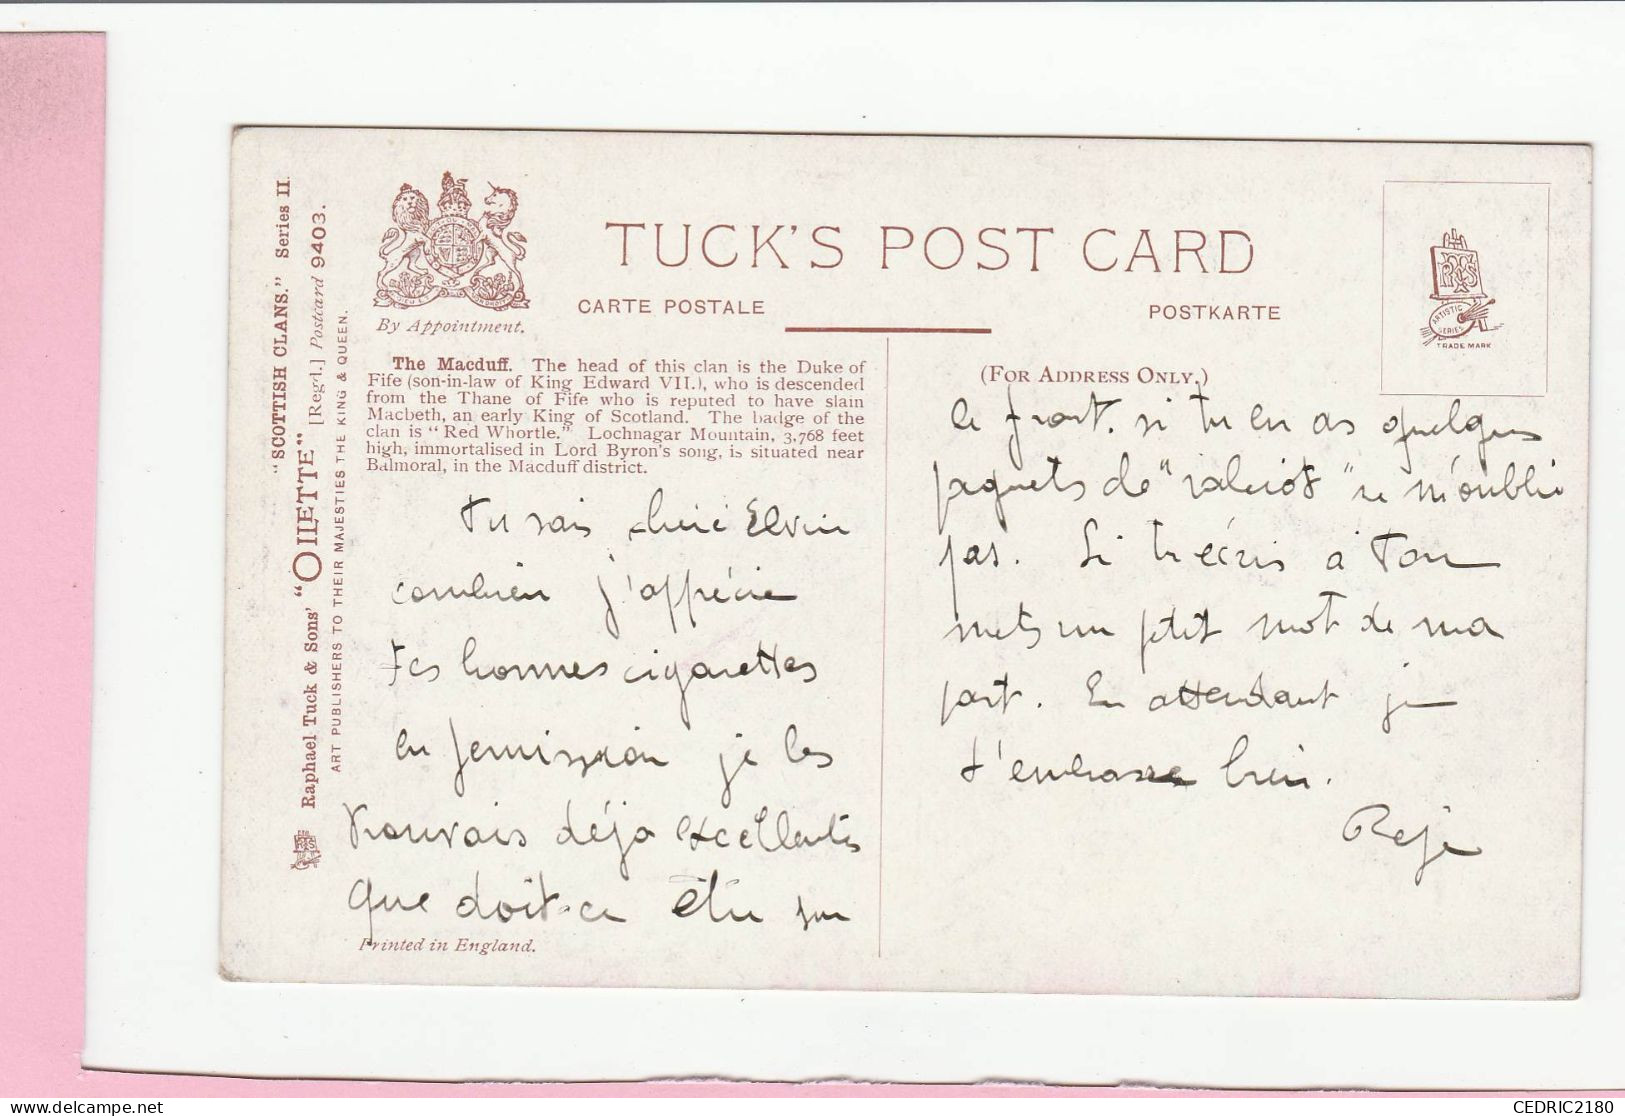 "SCOTTISH CLANS." Series II.
Raphael Tuck & Sons' "OILETTE" [Regd.] Postcard 9403.
ART PUBLISHERS TO THEIR MAJESTIES THE KING & QUEEN.
By Appointment.
TUCK'S POST CARD
CARTE POSTALE
POSTKARTE
ARTISTIC
SERIES
TRADE MARK
The Macduff. The head of this clan is the Duke of
Fife (son-in-law of King Edward VII.), who is descended
from the Thane of Fife who is reputed to have slain
Macbeth, an early King of Scotland. The badge of the
clan is "Red Whortle." Lochnagar Mountain, 3,768 feet
high, immortalised in Lord Byron's song, is situated near
Balmoral, in the Macduff district.
Tu sais
combien j'apprécie
tes bonnes cigarettes
en permission je les
trouvais déjà excellentes
que doit-ce être sur
Printed in England.
(FOR ADDRESS ONLY.)
le front. si tu en as quelques
paquets de ne m'oublie
pas. Si tu écris à Ton
mets un petit mot de ma
part. En attendant je
t'embrasse bien.
CEDRIC2180